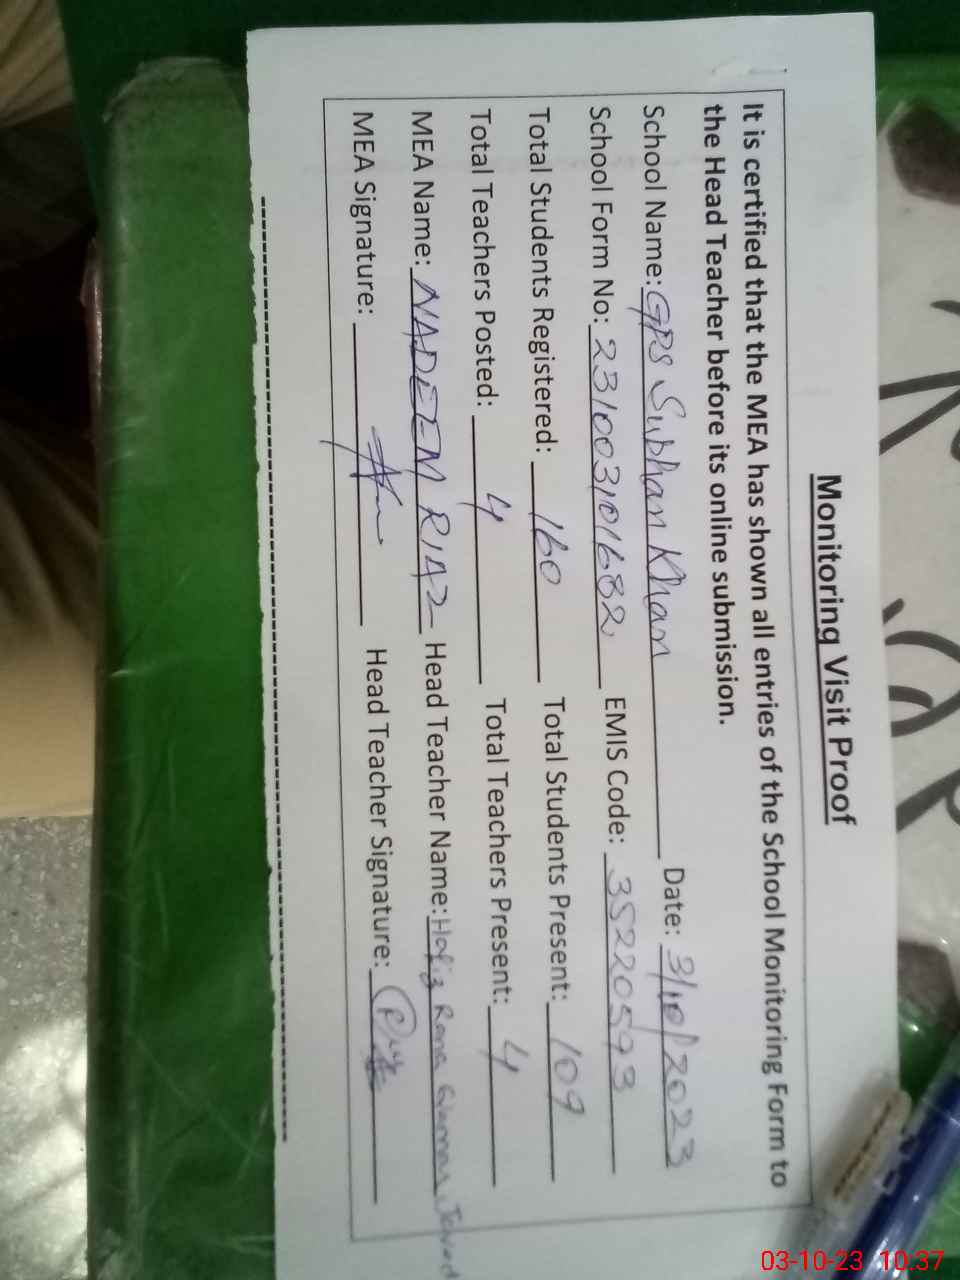 Monitoring Visit Proof
It is certified that the MEA has shown all entries of the School Monitoring Form to
the Head Teacher before its online submission.
School Name: GPS Subhan Khan Date: 3/10/2023
School Form No: 231003101682 EMIS Code: 35220593
Total Students Registered: 160 Total Students Present: 109
Total Teachers Posted: 4 Total Teachers Present: 4
MEA Name: NADEEM RIAZ Head Teacher Name: Hafiz Rana Javed
MEA Signature: Head Teacher Signature:
03-10-23 10:37